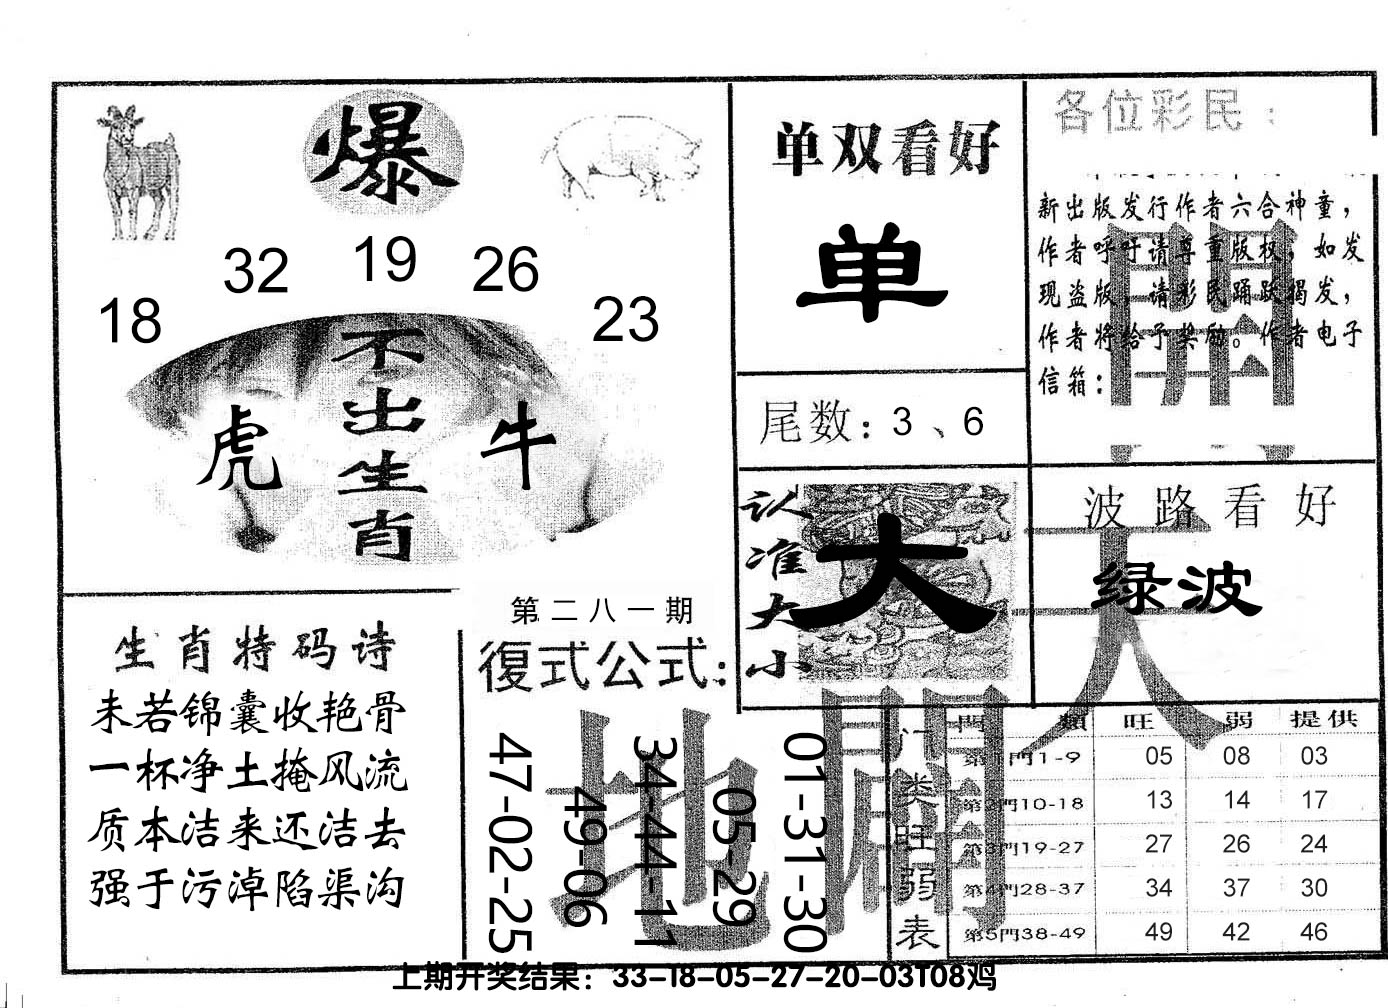 爆
18 32 19 26 23
不出生肖
虎 牛
生肖特码诗
未若锦囊收艳骨
一杯净土掩风流
质本洁来还洁去
强于污淖陷渠沟
第二八一期
復式公式:
47-02-25
49-06
34-44-11
05-29
01-31-30
单双看好
单
尾数: 3、6
认准大小
大
各位彩民:
新出版发行作者六合神童,
作者呼吁请尊重版权,如发
现盗版,请彩民踊跃揭发,
作者将给予奖励。作者电子
信箱:
開
天
地
開
波路看好
绿波
门类旺弱表
門類 旺 弱 提供
第1門1-9 05 08 03
第2門10-18 13 14 17
第3門19-27 27 26 24
第4門28-37 34 37 30
第5門38-49 49 42 46
上期开奖结果：33-18-05-27-20-03T08鸡